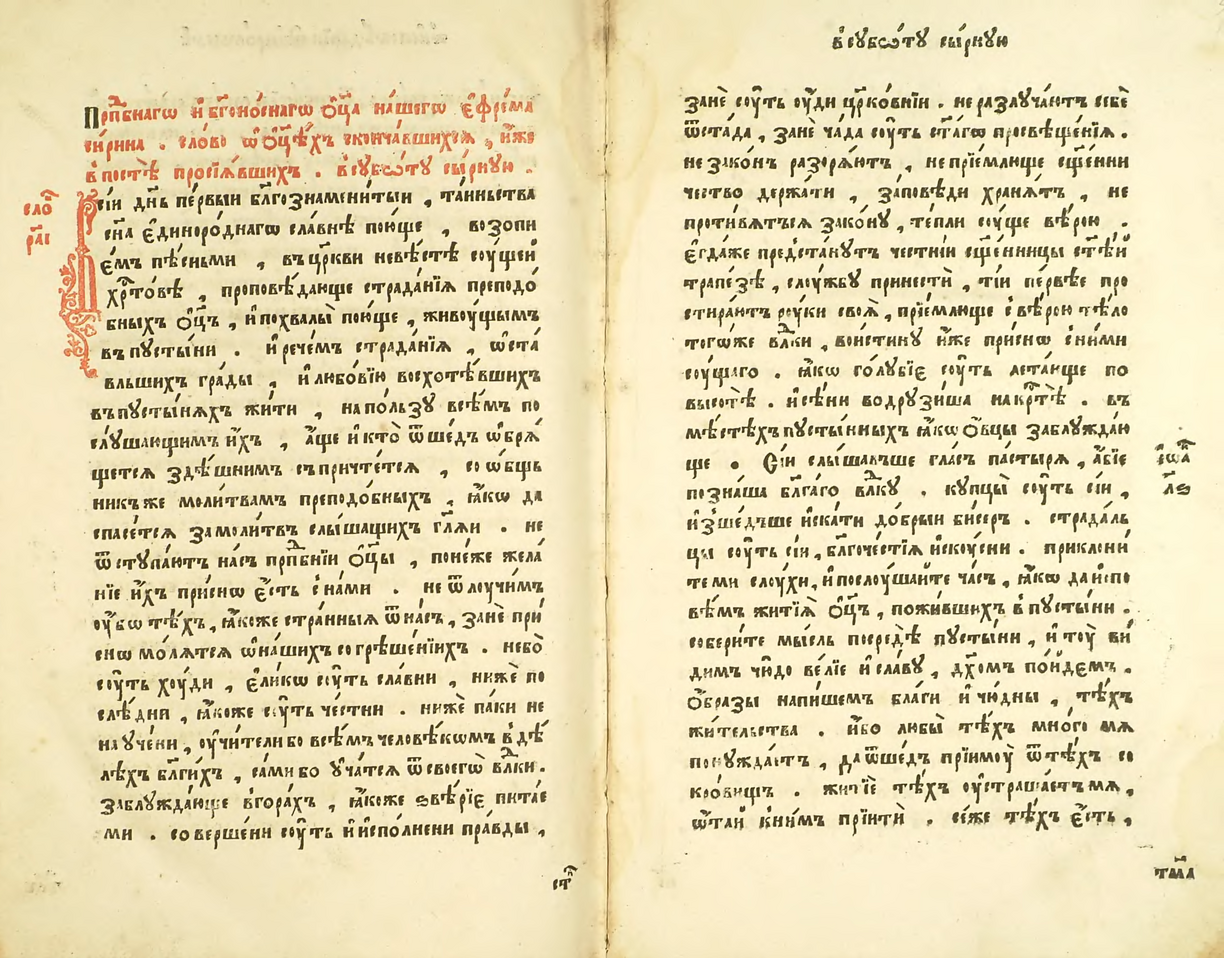 Прпⷣбнагѡ и҆ бг҃оно́снагѡ ѻ҆ц҃а на́шегѡ є҆фре́ма
си́рина . сло́во ѡ҆ ѻ҆ц҃ѣхъ сконча́вшихсѧ , и҆́же
в постѣ̀ просїѧ́вшихъ . в сꙋббѡ́тꙋ сы́рнꙋю .
сло́
р҃аі
сі́и дн҃ь пе́рвыи благознамени́тыи , та́иньства
сн҃а є҆диноро́днагѡ сла́внѣ пою́ще , возопи
є҆́мъ пѣ́сньми , въ цр҃кви невѣ́стѣ сꙋ́щеи
хрⷭ҇то́вѣ , проповѣ́дающе страда́нїѧ преподо́
бныхъ ѻ҆ц҃ъ , и҆ похвалы̀ пою́ще , живоу́щымъ
въ пꙋсты́ни . и҆ рече́мъ страда́нїѧ , ѡ҆ста́
вльшихъ гра́ды , и҆ любо́вїю восхотѣ́вшихъ
въ пꙋсты́нѧхъ жи́ти , на по́льзꙋ всѣ́мъ по
слꙋ́шающимъ и҆́хъ , а҆́ще и҆ кто̀ ѿше́дъ ѡ҆брѧ́
щетсѧ здѣ́шнимъ съпричте́тсѧ , соѡ́бщь
никъ же моли́твамъ преподо́бныхъ , ꙗ҆́кѡ да
спасе́тсѧ за моли́твъ слы́шащихъ гл҃ѧи . не
ѿстꙋпа́ютъ на́съ прпⷣбнїи ѻ҆ц҃ы , поне́же жела́
нїе и҆́хъ при́снѡ є҆́сть с на́ми . не ѿлоучи́мъ
оу҆́бѡ тѣ́хъ , ꙗ҆́коже стра́нныѧ ѿ на́съ , занѐ при́
снѡ мо́лѧтсѧ ѡ҆ на́шихъ согрѣше́нїихъ . небо̀
соу́ть хоу́ди , є҆ли́кѡ соу́ть сла́вни , нижѐ по
слѣ́днїи , ꙗ҆́коже соу́ть че́стни . нижѐ па́ки не
наꙋче́ни , оу҆чи́тели бо всѣ́мъ человѣ́кѡмъ в дѣ́
лѣхъ бл҃ги́хъ , са́ми бо ꙋ҆ча́тсѧ ѿ своегѡ̀ влⷣки .
заблꙋжда́юще в гора́хъ , ꙗ҆́коже ѕвѣ́рїе пита́е
ми . соверше́ни соу́ть и҆ и҆спо́лнени пра́вды ,
ст҃
в сꙋббѡ́тꙋ сы́рнꙋю
занѐ соу́ть оу҆́ди цр҃ко́внїи . не разлꙋча́ютъ себѐ
ѿ ста́да , занѐ ча́да соу́ть ст҃а́гѡ просвѣще́нїѧ .
не зако́нъ разорѧ́ютъ , не прїе́млюще сщ҃е́нни
чество держа́ти , за́повѣди хранѧ́тъ , не
проти́вѧтъсѧ зако́нꙋ , те́пли соу́ще вѣ́рою .
є҆гда́же предста́нꙋтъ честні́и сщ҃е́нницы ст҃ѣ́и
трапе́зѣ , слоу́жбꙋ принестѝ , ті́и пе́рвѣе про
стира́ютъ роу́ки своѧ̀ , прїе́млюще с вѣ́рою тѣ́ло
того́же влⷣки , вои́стинꙋ и҆́же при́снѡ с ни́ми
соу́щаго . ꙗ҆́кѡ го́лꙋбїе соу́ть лета́юще по
высотѣ̀ . и҆ сѣ́ни водрꙋзи́ша на крⷭ҇тѣ̀ . въ
мѣ́стѣхъ пꙋсты́нныхъ ꙗ҆́кѡ ѻ҆́вцы заблꙋжда́ю
ще . Сі́и слы́шавъше гла́съ па́стырѧ , а҆́бїе
і҆ѡа́
ле
позна́ша бл҃га́го влⷣкꙋ . кꙋпцы̀ соу́ть сі́и ,
и҆зше́дъше и҆ска́ти до́брыи би́серъ . страда́ль
цы соу́ть сі́и , бл҃гоче́стїѧ и҆скоу́сни . приклони́
те ми слоу́хи , и҆ послоу́шаите ча́съ , ꙗ҆́кѡ да и҆спо
вѣ́мъ житїѧ̀ ѻ҆ц҃ъ , пожи́вшихъ в пꙋсты́ни .
собери́те мы́сль посредѣ̀ пꙋсты́ни , и҆ тоу̀ ви́
димъ чю́до ве́лїе и҆ сла́вꙋ , дх҃омъ по́идемъ .
ѻ҆́бразы напи́шемъ бла́ги и҆ чю́дны , тѣ́хъ
жи́тельства . и҆́бо любы̀ тѣ́хъ мно́го мѧ
понꙋжда́етъ , да ѿше́дъ прїимоу̀ ѿ тѣ́хъ со
кро́вищъ . житїѐ тѣ́хъ оу҆страша́етъ мѧ ,
ѿтаи́ к ни́мъ прїитѝ . се́же тѣ́хъ є҆́сть ,
тма̀